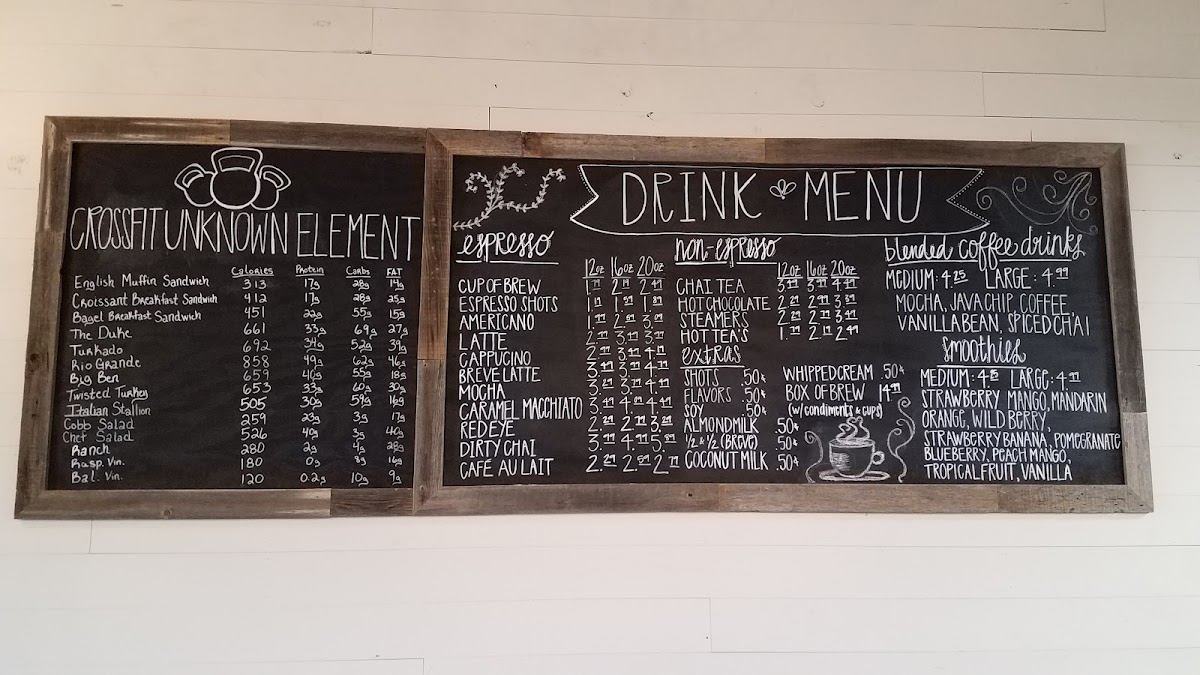 CROSSFIT UNKNOWN ELEMENT
Calories Protein Carbs FAT
English Muffin Sandwich 313 17g 28g 14g
Croissant Breakfast Sandwich 412 17g 28g 25g
Bagel Breakfast Sandwich 451 22g 55g 15g
The Duke 661 33g 69g 27g
Turkado 692 34g 52g 39g
Rio Grande 858 49g 62g 46g
Big Ben 659 46g 55g 18g
Twisted Turkey 653 33g 60g 30g
Italian Stallion 505 30g 59g 16g
Cobb Salad 259 23g 3g 17g
Chef Salad 526 40g 3g 40g
Ranch 280 2g 4g 28g
Rasp. Vin. 180 0g 8g 16g
Bal. Vin. 120 0.2g 10g 9g
DRINK MENU
espresso
12oz 16oz 20oz
CUP OF BREW
ESPRESSO SHOTS
AMERICANO
LATTE
CAPPUCINO
BREVE LATTE
MOCHA
CARAMEL MACCHIATO
RED EYE
DIRTY CHAI
CAFÉ AU LAIT
non-espresso
12oz 16oz 20oz
CHAI TEA
HOT CHOCOLATE
STEAMERS
HOT TEA'S
extras
SHOTS .50¢
FLAVORS .50¢
SOY .50¢
ALMONDMILK .50¢
½ & ½ (BREVE) .50¢
COCONUT MILK .50¢
WHIPPED CREAM .50¢
BOX OF BREW 14.99
(W/ CONDIMENTS & CUPS)
blended coffee drinks
MEDIUM: 4.25 LARGE: 4.99
MOCHA, JAVA CHIP, COFFEE,
VANILLA BEAN, SPICED CHAI
smoothies
MEDIUM: 4.25 LARGE: 4.99
STRAWBERRY MANGO, MANDARIN
ORANGE, WILD BERRY,
STRAWBERRY BANANA, POMEGRANATE
BLUEBERRY, PEACH MANGO,
TROPICAL FRUIT, VANILLA